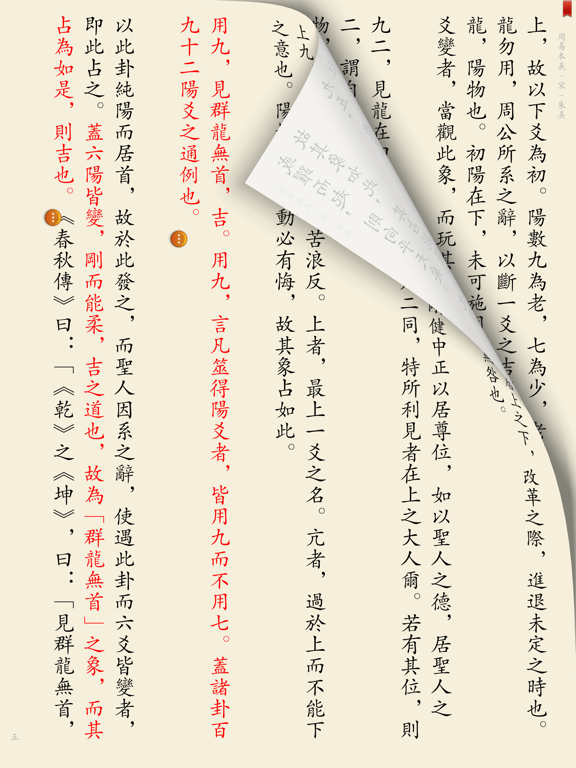 周易本義－宋－朱熹
上，故以下爻為初。陽數九為老，七為少，
龍勿用，周公所系之辭，以斷一爻之吉
上之下，改革之際，進退未定之時也。
龍，陽物也。初陽在下，未可施
無咎也。
爻變者，當觀此象，而玩其
健中正以居尊位，如以聖人之德，居聖人之
二同，特所利見者在上之大人爾。若有其位，則
九二，見龍在
二，謂
物，
上九
苦浪反。上者，最上一爻之名。亢者，過於上而不能下
之意也。陽
動必有悔，故其象占如此。
用九，見群龍無首，吉。用九，言凡筮得陽爻者，皆用九而不用七。蓋諸卦百
九十二陽爻之通例也。
以此卦純陽而居首，故於此發之，而聖人因系之辭，使遇此卦而六爻皆變者，
即此占之。蓋六陽皆變，剛而能柔，吉之道也，故為「群龍無首」之象，而其
占為如是，則吉也。《春秋傳》曰：「《乾》之《坤》，曰：「見群龍無首，
五